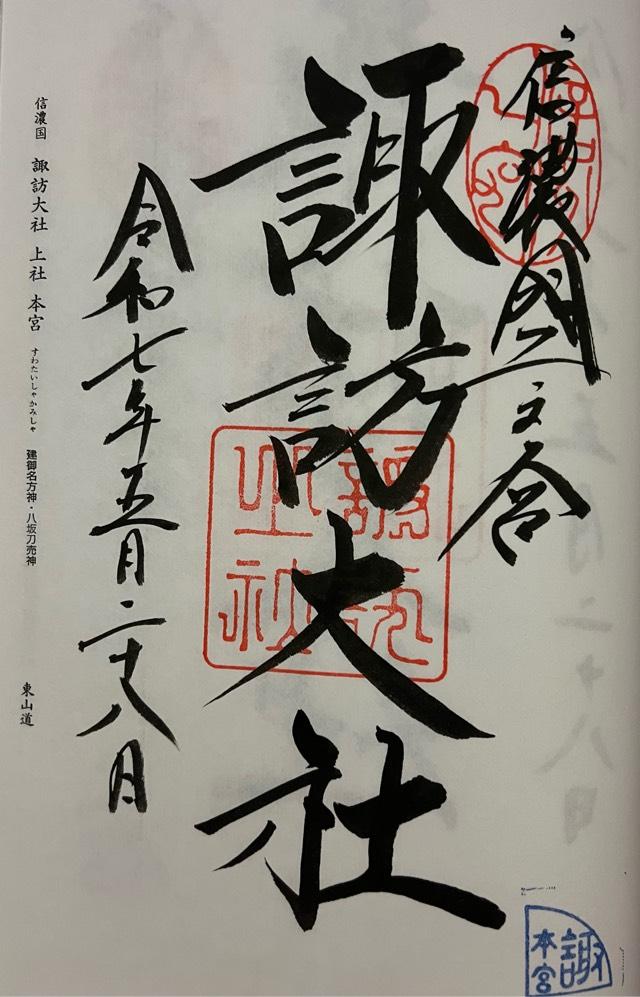 信濃國一之宮
諏訪大社
令和七年五月二十八日
信濃国 諏訪大社 上社 本宮 すわたいしゃかみしゃ 建御名方神・八坂刀売神 東山道
諏
本宮